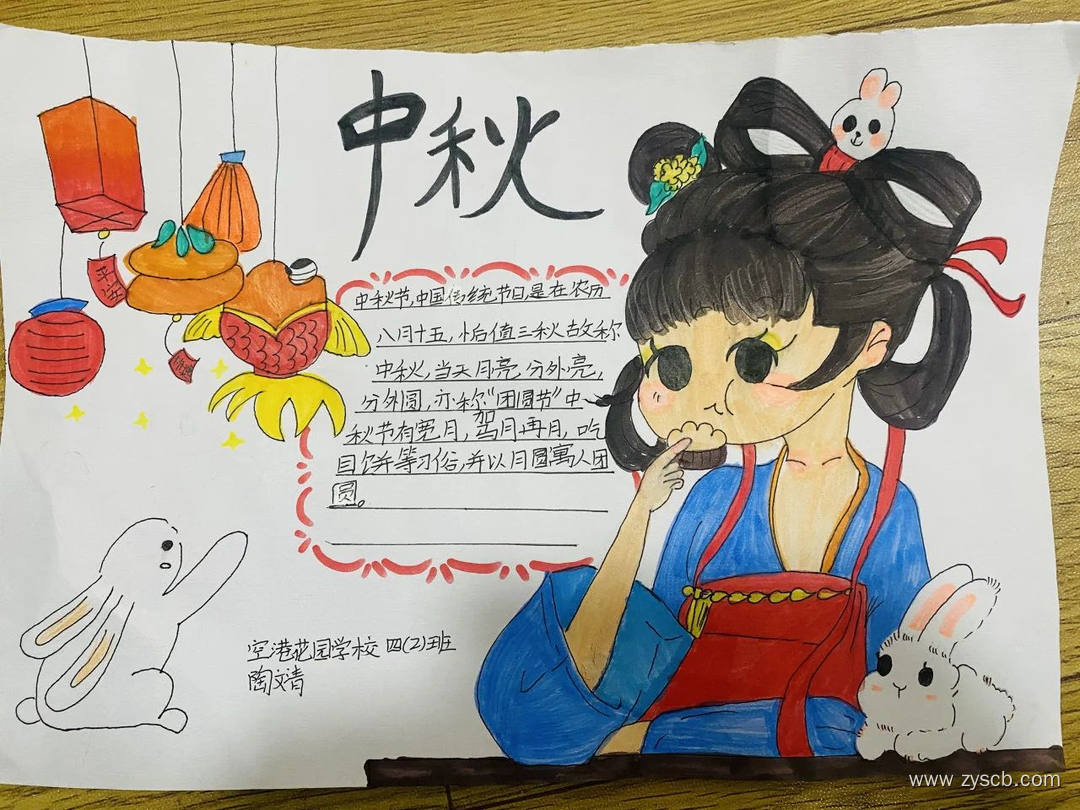 中秋
平安
中秋节,中国传统节日,是在农历
八月十五,恰值三秋故称
中秋,当天月亮分外亮,
分外圆,亦称“团圆节”中
秋节有赏月,
吃
月饼等习俗,并以月圆寓人团
圆。
空港花园学校 四(2)班
陶文清
www.zyscb.com